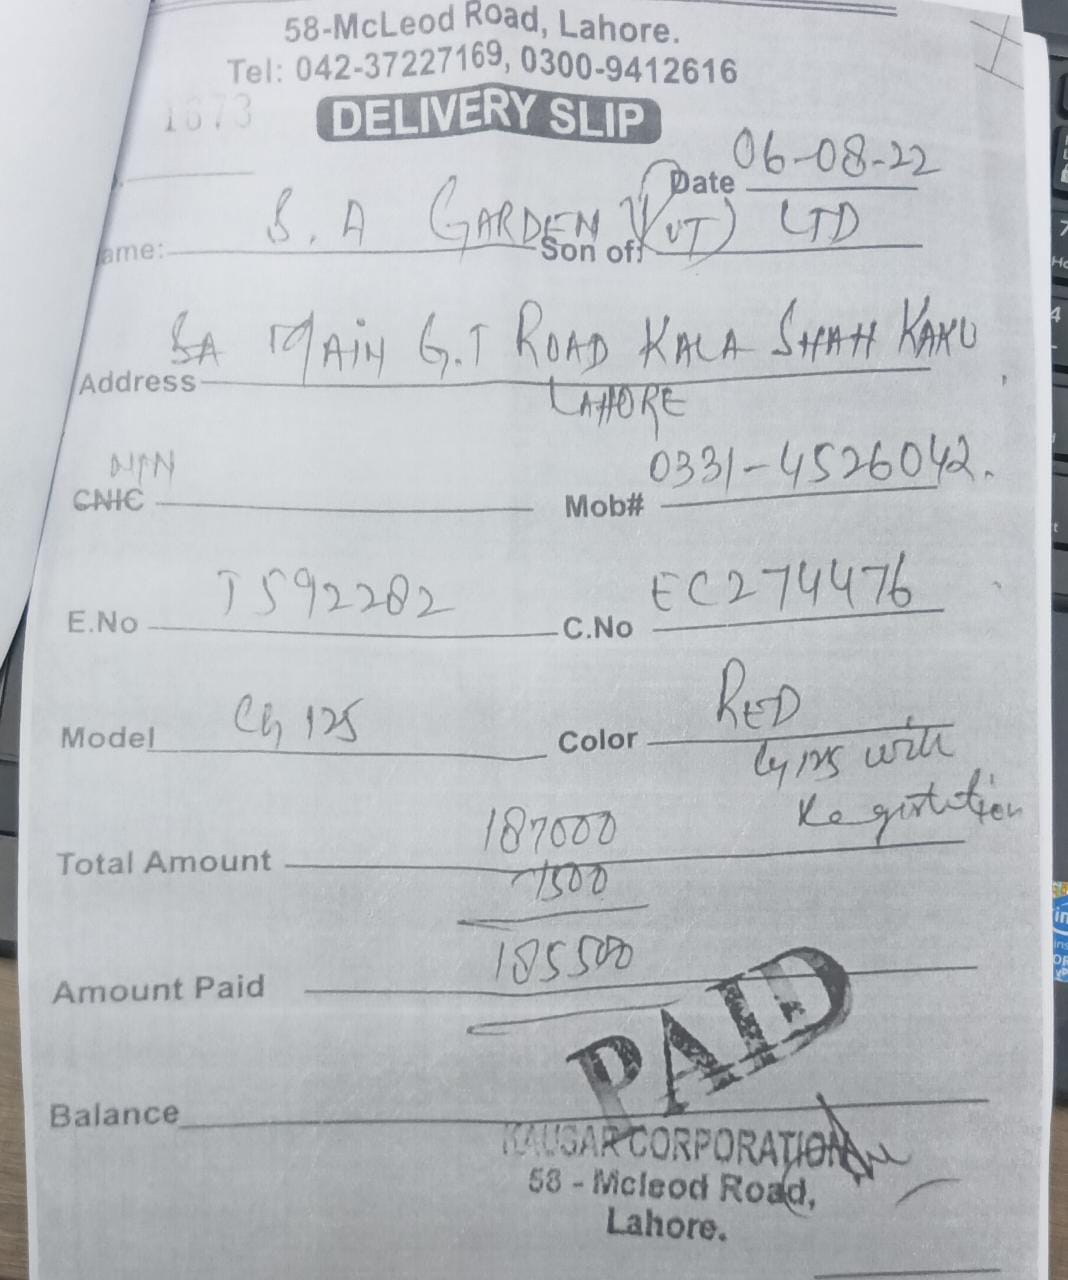 58-McLeod Road, Lahore.
Tel: 042-37227169, 0300-9412616
1673
DELIVERY SLIP
Date 06-08-22
ame: S.A GARDEN (PVT) LTD
Son of:
Address SA MAIN G.T ROAD KALA SHAH KAKU
LAHORE
NTN
CNIC Mob# 0331-4526042.
E.No T592282 C.No EC274476
Model CG 125 Color RED
CG 125 with
Registration
Total Amount 187000
-1500
Amount Paid 185500
PAID
Balance
KAUSAR CORPORATION
58 - Mcleod Road,
Lahore.